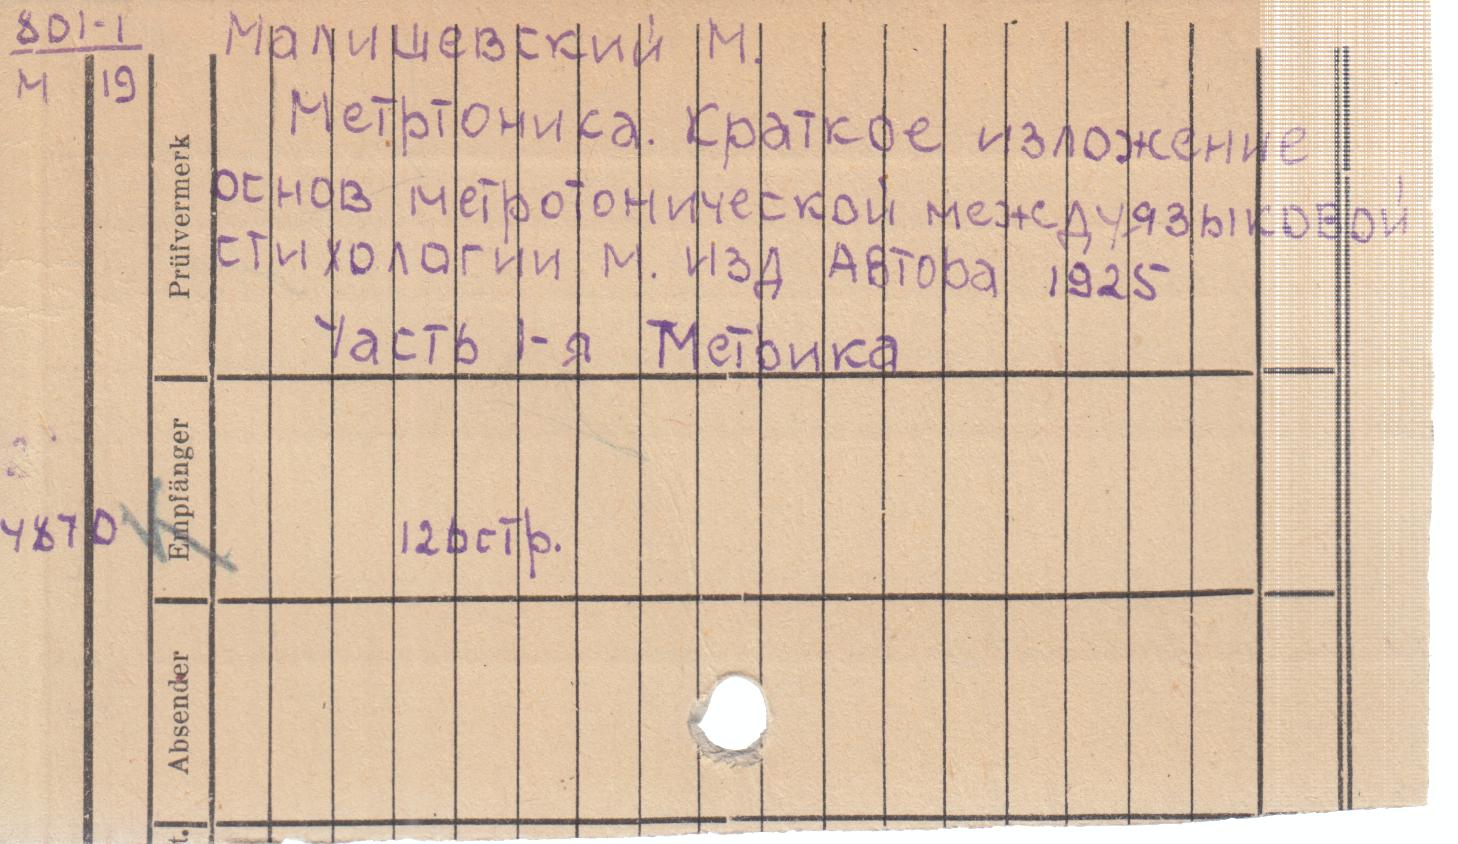 801-1
М 19
Малишевский М.
Метртоника. Краткое изложение
основ метротонической междуязыковой
стихологии М. Изд Автора 1925
Часть 1-я Метрика
4870
126стр.
Prüfvermerk
Empfänger
Absender
t.